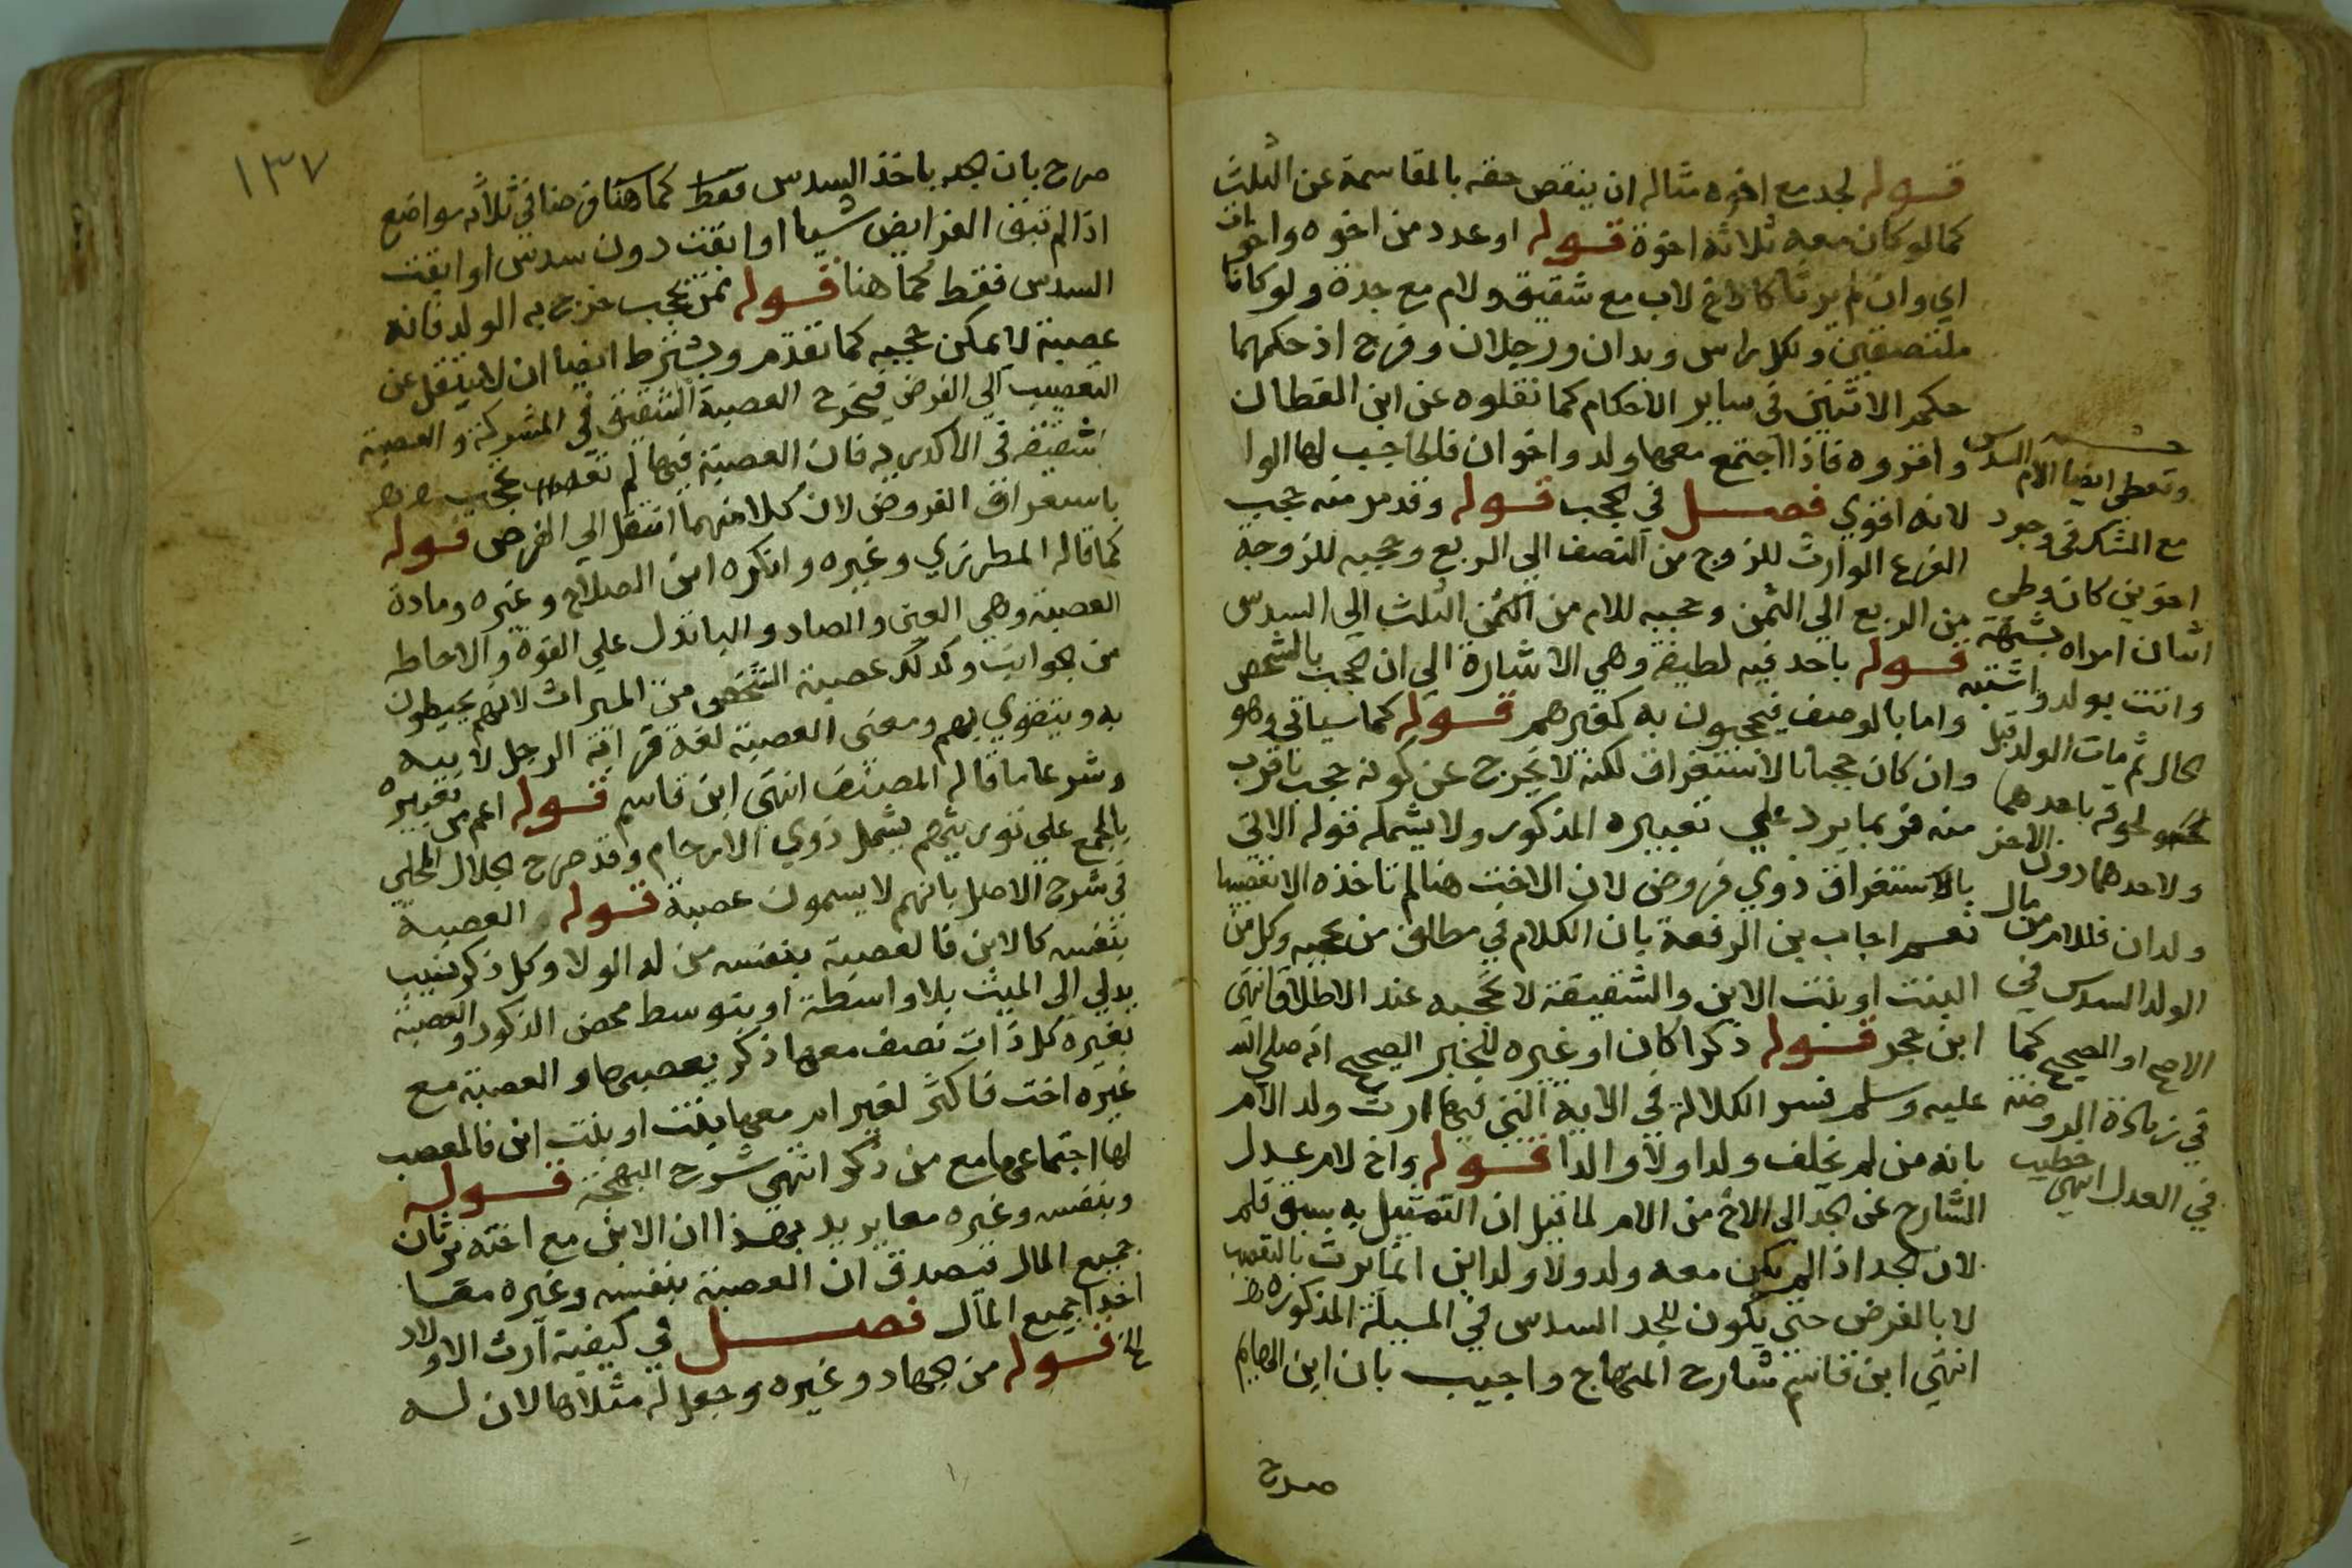 قوله لجد مع اخوه مثاله ان ينقص حقه بالمقاسمة عن الثلث
كما لو كان معه ثلاثة اخوة قوله او عدد من اخوه واخوات
اي وان لم يرثا كاخ لاب مع شقيق ولام مع جدة ولو كانا
ملتصقين ولكل راس ويدان ورجلان وفرج اذ حكمهما
حكم الاثنين في ساير الاحكام كما نقلوه عن ابن القطان
واقروه فاذا اجتمع معها ولد واخوان فالحاجب لها الولد
لانه اقوي فصل في الحجب قوله وقد مر منه حجب
الفرع الوارث للزوج من النصف الي الربع وحجبه للزوجة
من الربع الي الثمن وحجبه للام من الثلث الي السدس
قوله باحد فيه لطيفة وهي الاشارة الي ان الحجب بالشخص
واما بالوصف فيحجبون به كغيرهم قوله كما سياتي وهو
وان كان حجبا بالاستغراق لكنه لا يخرج عن كونه حجب باقرب
منه فربما يرد علي تعبيره المذكور ولا يشمله قوله الاتي
بالاستغراق ذوي فروض لان الاخت هنا لم تاخذه الا تعصيبا
نعم اجاب بن الرفعة بان الكلام في مطلق من يحجبه وكل من
البنت او بنت الابن والشقيقة لا تحجبه عند الاطلاق انتهي
ابن حجر قوله ذكرا كان او غيره للخبر الصحيح انه صلي الله
عليه وسلم فسر الكلالة في الاية التي فيها ارث ولد الام
بانه من لم يخلف ولدا ولا والدا قوله واخ لام عدل
الشارح عن الجد الي الاخ من الام لما قيل ان التمثيل به سبق قلم
لان الجد اذا لم يكن معه ولد ولا ولد ابن انما يرث بالتعصيب
لا بالفرض حتي يكون للجد السدس في المسيلة المذكوره
انتهي ابن قاسم شارح المنهاج واجيب بان ابن الهايم
صرح
وتعطي ايضا الام السدس
مع الشك في وجود
اخوين كان وطي
اثنان امراه بشبهة
واتت بولد واشتبه
الحال ثم مات الولد قبل
لحوقه باحدهما
ولاحدهما دون الاخر
ولدان فللام من مال
الولد السدس في
الاصح او الصحيح كما
في زيادة الروضة
في العدد انتهي خطيب
١٣٧
صرح بان الجد ياخذ السدس فقط كما هنا فرضا في ثلاثة مواضع
اذا لم تبق الفرايض شيا او ابقت دون سدس او ابقت
السدس فقط كما هنا قوله بمن يحجب خرج به الولد فانه
عصبة لا يمكن حجبه كما تقدم ويشترط ايضا ان لا ينتقل عن
التعصيب الي الفرض فيخرج العصبة الشقيق في المشركة والعصبة
شقيقه في الاكدريه فان العصبة فيها لم تحجب
باستغراق الفروض لان كلا منهما انتقل الي الفرض قوله
كما قاله المطرزي وغيره وانكره ابن الصلاح وغيره ومادة
العصبة وهي العين والصاد والبا تدل علي القوة والاحاطه
من الجوانب وكذلك عصبة الشخص من الميراث لانهم يحيطون
به ويتقوي بهم ومعني العصبة لغة قرابة الرجل لابيه
وشرعا ما قاله المصنف انتهي ابن قاسم قوله اعم من تعبيره
بالمجمع علي توريثهم يشمل ذوي الارحام وقد صرح الجلال المحلي
في شرح الاصل بانهم لا يسمون عصبة قوله العصبة
بنفسه كالابن فالعصبة بنفسه من له الولا وكل ذكر نسيب
يدلي الي الميت بلا واسطة او بتوسط محض الذكور والعصبة
بغيره كل ذات نصف معها ذكر يعصبها والعصبة مع
غيره اخت فاكثر لغير ام معها بنت او بنت ابن فالمعصب
لها اجتماعها مع من ذكر انتهي شرح البهجة قوله
وبنفسه وغيره معا يريد بهذا ان الابن مع اخته يرثان
جميع المال فيصدق ان العصبة بنفسه وغيره معا
اخذا جميع المال فصل في كيفية ارث الاولاد
الخ قوله من الجهاد وغيره وجعل له مثلاها لان له